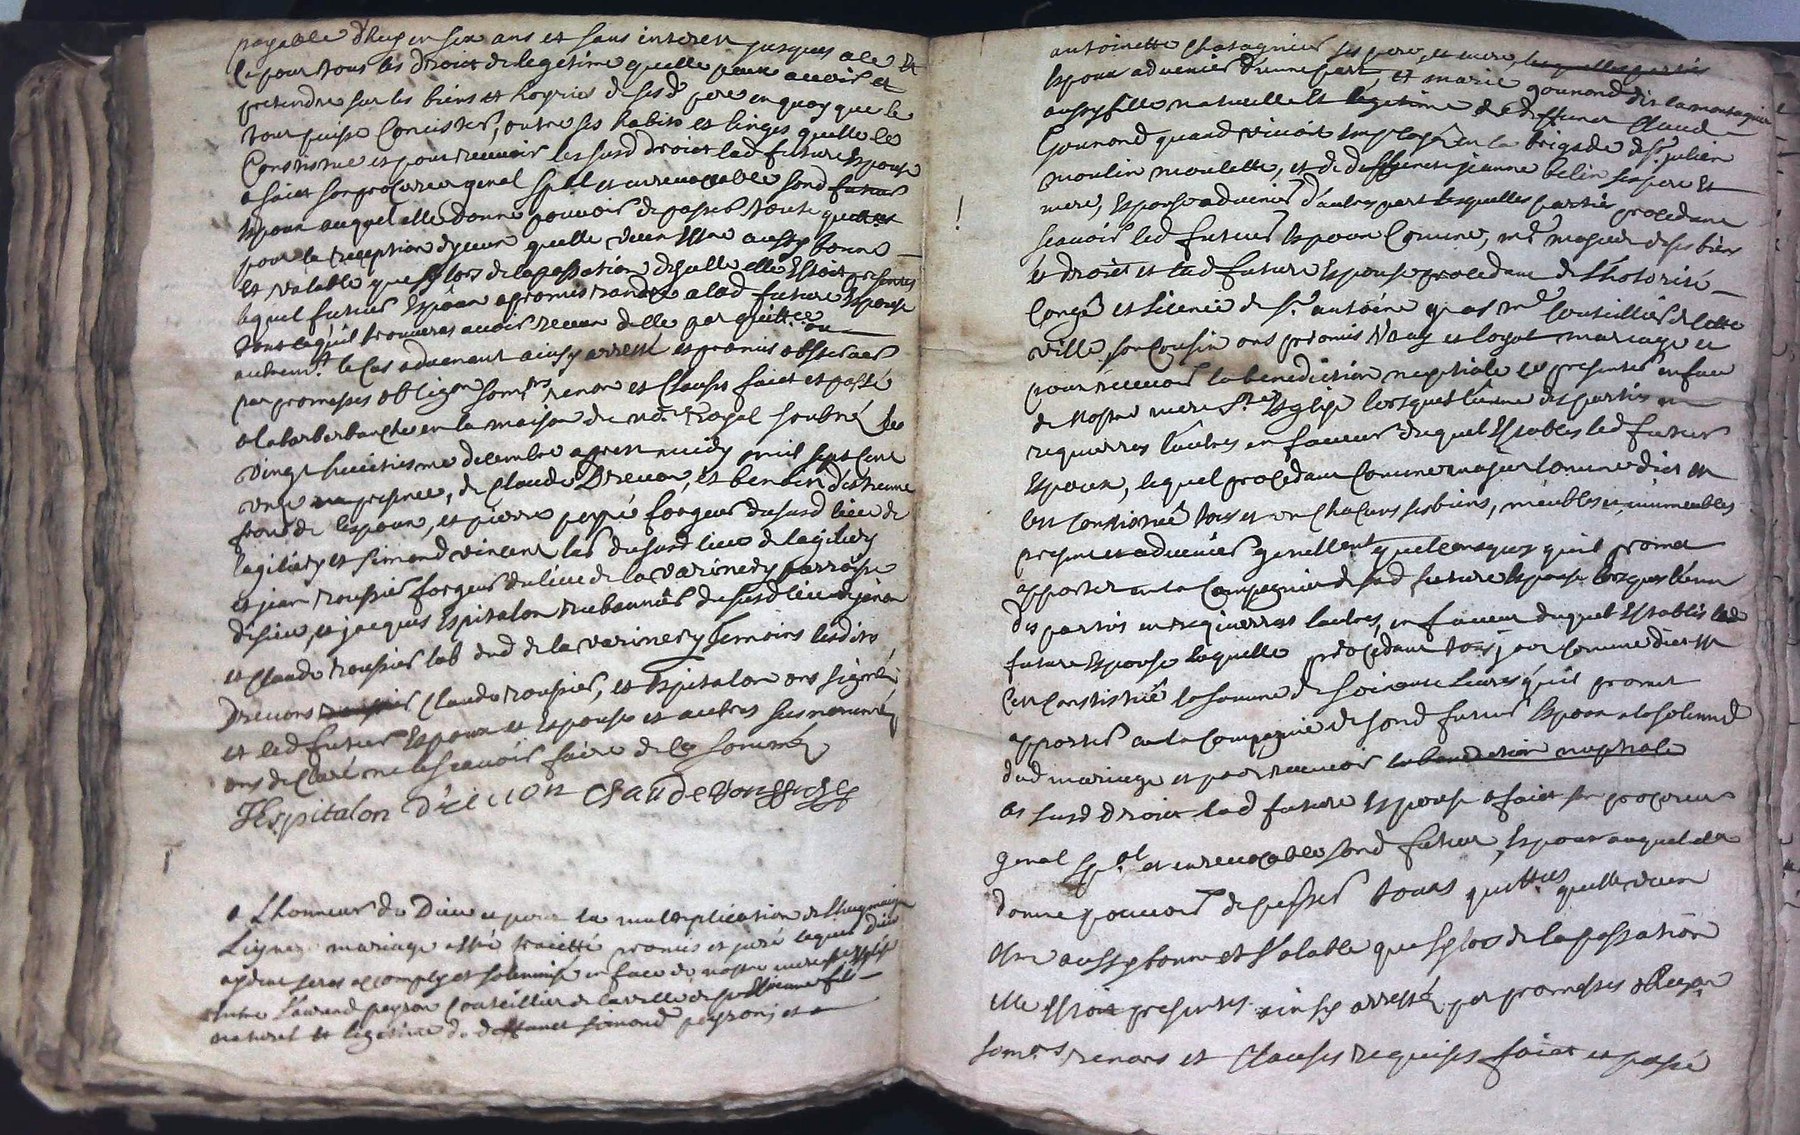 payable d'huy en six ans et sans interest jusques alc Et
Ce pour tous les droicts de legitime quelle peux auoir et
pretendre sur les biens et hoyries de sesd pere en quoy que le
tout puisse Concister, outre ses habits et linges quelle ce
Constitue et pour receuoir les susd droict lad future Espouse
a faict son procureur genal spal et irreuocable sond futur
Espoux auquel elle donne pouuoir de passer toute quittance
pour la reception dyceux quelle veux Estre aussy bonne
et valable que sy lors de la passation dycelle elle Estoit presentes
lequel futur Espoux a promis randre a lad future Espouse
tout ce quil trouueras auoir receux delle par quittce ou
autremt le Cas aduenant ainsy arresté et promis obseruer
par promesses obligon somns renon et Clauses faict et passé
a la barbanche en la maison de nore Royal soubné le
vingt huictiesme decembre apprest midy mil sept Cent
onze en presence, de Claude Dreuon, et benoin d'estienne
de lespoux, et pierre peyre forgeur du susd lieu de
lagiliery et simond vincent lab du susd lieu de lagiliery
et jean roussier forgeur du lieu de la varinery parroisse
et jacques Espitalon rubannier du susd lieu
et Claude roussier lab dud de la varinery temoins lesdits
Dreuons Claude roussier, et Espitalon ont signés
et led futur Espoux et Espouse et autres susnommés
ont declaré ne le scauoir faire de ce sommés
Hespitalon Dreuon Claude Roussier
A Lhonneur de Dieu et pour la multiplication de Lhumain
Lignee mariage a esté traicté promis et juré lequel Dieu
aydant seras accomply et solemnise en face de nostre mere ste Esglise
Entre Laurand peyron Couteillier de la ville de st Estienne fils
naturel et legitime de deffunct simond peyron, et
antoinette Chatagnier ses pere et mere
Espoux aduenir d'une part, et marie gounond dit la montagnier
aussy fille naturelle Et legitime de deffunct Claude
Gounond quand viuoit Employé en la brigade de st julien
moulin moulette, et de deffuncte jeanne belin ses pere Et
mere, Espouse aduenir d'autre part lesquelles parties procedant
scauoir led futur Espoux Comme, me majeur de ses biens
et droict et lad future Espouse procedant de l'hotorité
Congé et licence de sr antoine gras me Couteillier de Cette
ville son Cousin ont promis vray et loyal mariage et
pour receuoir la benediction nuptiale se presenter en face
de Nostre mere ste Esglise lorsque l'une des parties en
requerras l'autres en faueur duquel Establis led futur
Espoux, lequel procedant Comme majeur Comme dict est
cest Constitué tous et un Chacuns ses biens, meubles et immeubles
present et aduenir genellent quelconques quil promet
apporter en la Compagnie de sad future Espouse lorsque l'une
des parties en requerras l'autres, en faueur duquel Establis lad
future Espouse laquelle procedant Comme dict est
cest Constitué la somme de soixante Liures quil promet
apporter en la Compagnie de sond futur Espoux a la solemnd
dud mariage et pour receuoir la benediction nuptiale
les susd droict lad future Espouse a faict son procureur
genal spal et irreuocable sond futur Espoux auquel elle
donne pouuoir de passer toutes quittces quelle veux
Estre aussy bonne et valable que sy lors de la passation
elle Estoit presentes ainsy arresté par promesses obligon
somns renons et Clauses requises faict et passé